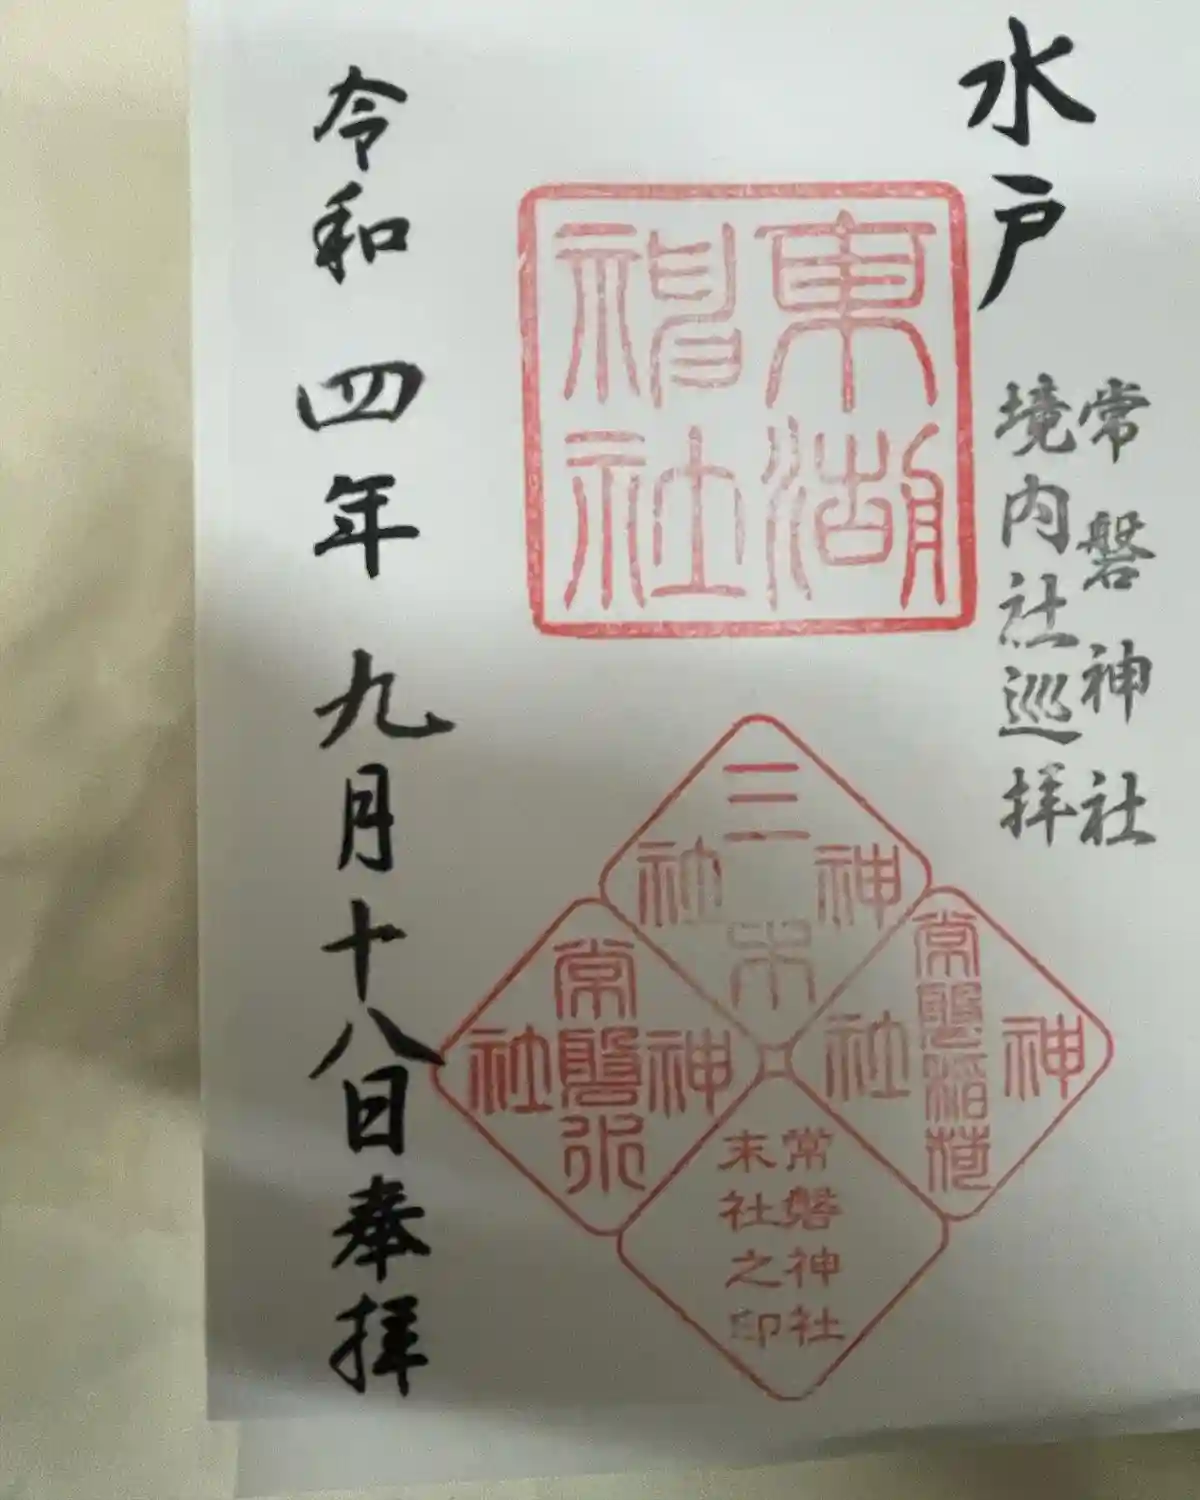 水戸
常磐神社
境内社巡拝
東湖
神社
三木
神社
常磐稲荷
神社
常磐水
神社
常磐神社
末社之印
令和四年九月十八日奉拝